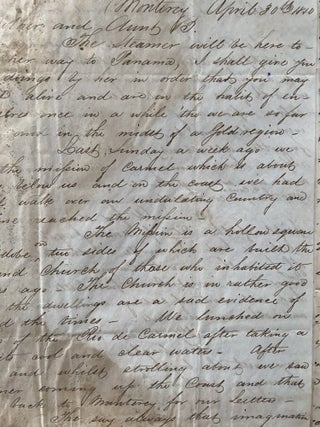 (Monterey April 30th
and Aunt
The Steamer will be here to-
her way to Panama, I shall give you
doings by her in order that you may
alive and are in the habit of en-
once in a while tho we are so far
and in the midst of a Gold region-
Last Sunday a week ago we
the mission of Carmel which is about
below us and on the coast we had
walk over our undulating Country and
reached the mission
The Mission is a hollow square
on
dobe, two sides of which are built the
and Church of those who inhabited it
ago The Church is in rather good
the dwellings are a sad evidence of
the times - We lunched on
of the Rio de Carmel after taking a
cool and clear waters - After
and whilst strolling about we saw
coming up the Coast and that
back to Monterey for our letters -
They say always that imagination